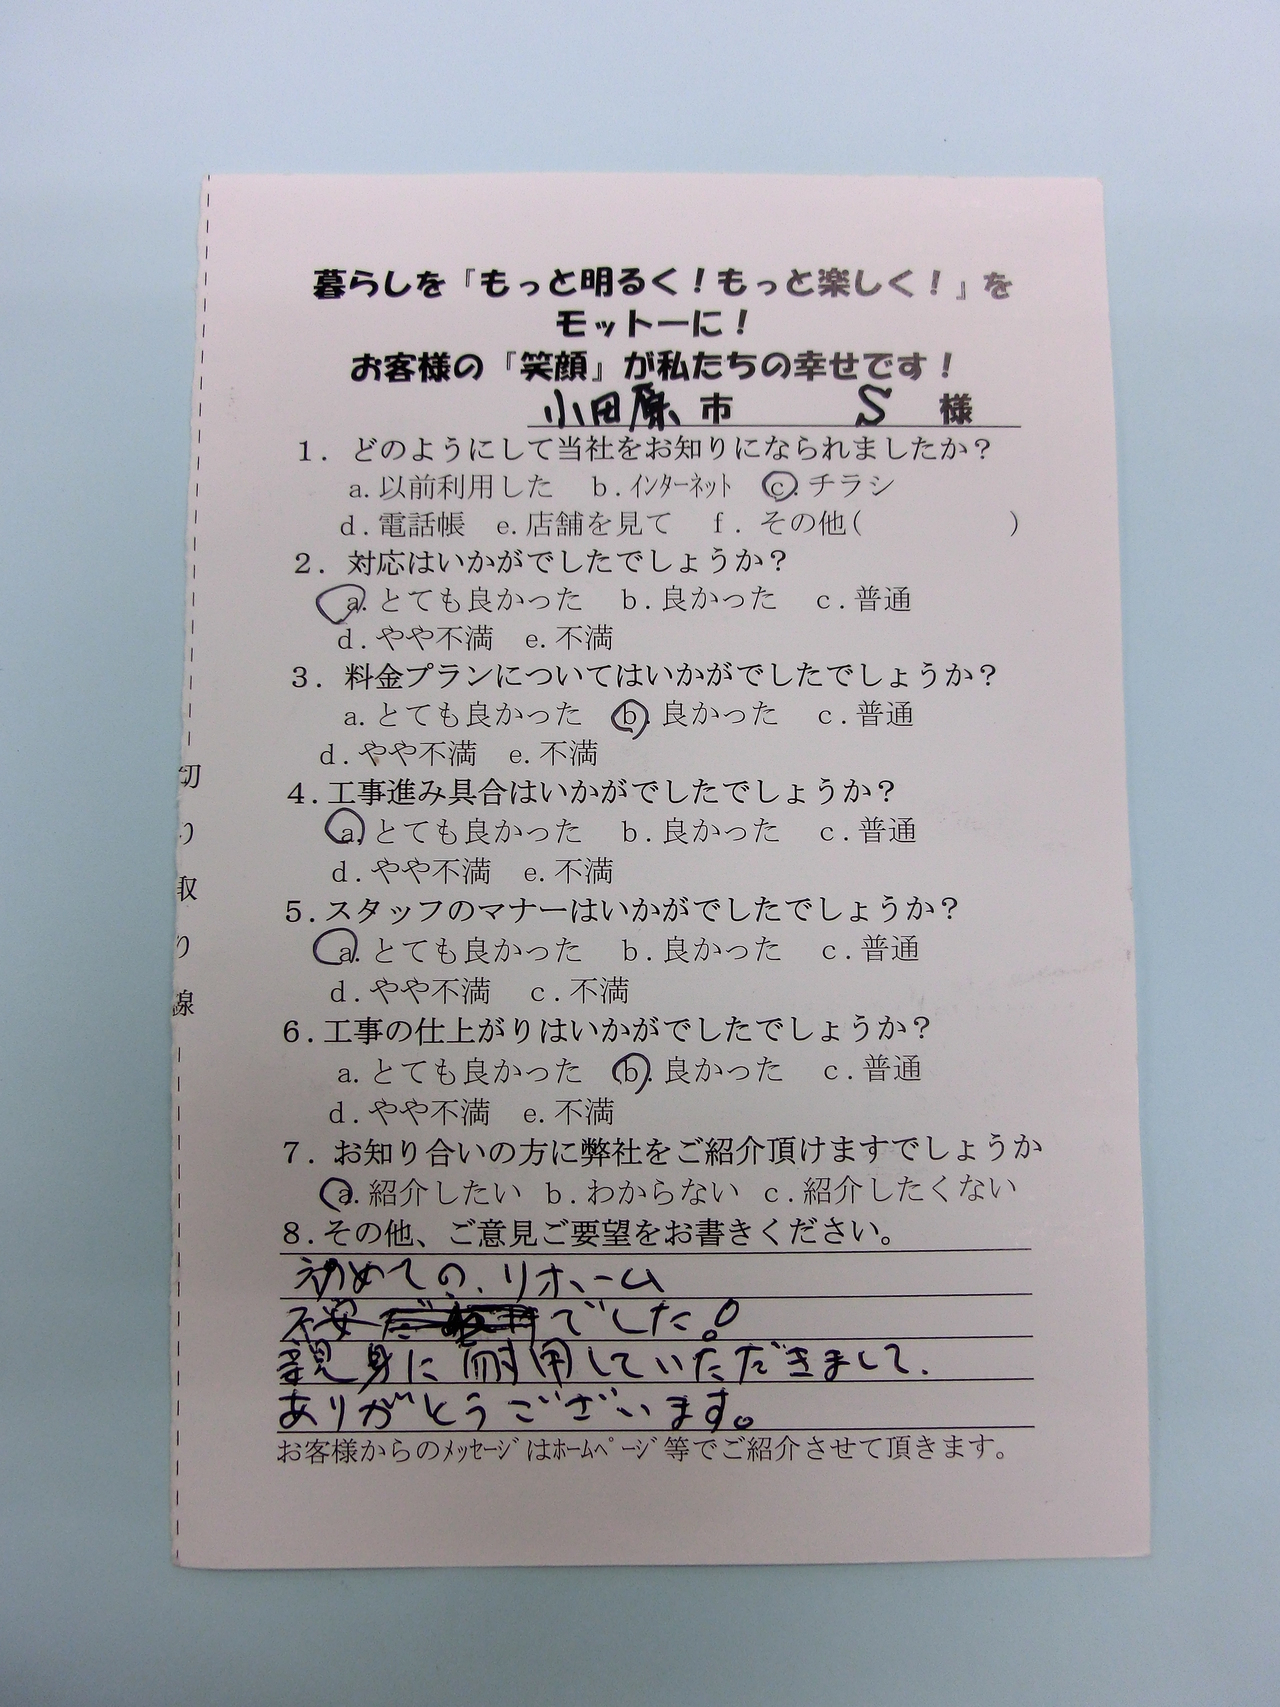 暮らしを『もっと明るく！もっと楽しく！』を
モットーに！
お客様の『笑顔』が私たちの幸せです！
小田原市 S 様
1. どのようにして当社をお知りになられましたか？
a.以前利用した b.ｲﾝﾀｰﾈｯﾄ c.チラシ
d.電話帳 e.店舗を見て f. その他( )
2. 対応はいかがでしたでしょうか？
a.とても良かった b.良かった c.普通
d.やや不満 e.不満
3. 料金プランについてはいかがでしたでしょうか？
a.とても良かった b.良かった c.普通
d.やや不満 e.不満
4.工事進み具合はいかがでしたでしょうか？
a.とても良かった b.良かった c.普通
d.やや不満 e.不満
5.スタッフのマナーはいかがでしたでしょうか？
a.とても良かった b.良かった c.普通
d.やや不満 c.不満
6.工事の仕上がりはいかがでしたでしょうか？
a.とても良かった b.良かった c.普通
d.やや不満 e.不満
7. お知り合いの方に弊社をご紹介頂けますでしょうか
a.紹介したい b.わからない c.紹介したくない
8.その他、ご意見ご要望をお書きください。
初めての、リホーム
不安でした。
親身に していただきまして、
ありがとうございます。
お客様からのﾒｯｾｰｼﾞはﾎｰﾑﾍﾟｰｼﾞ等でご紹介させて頂きます。
切り取り線